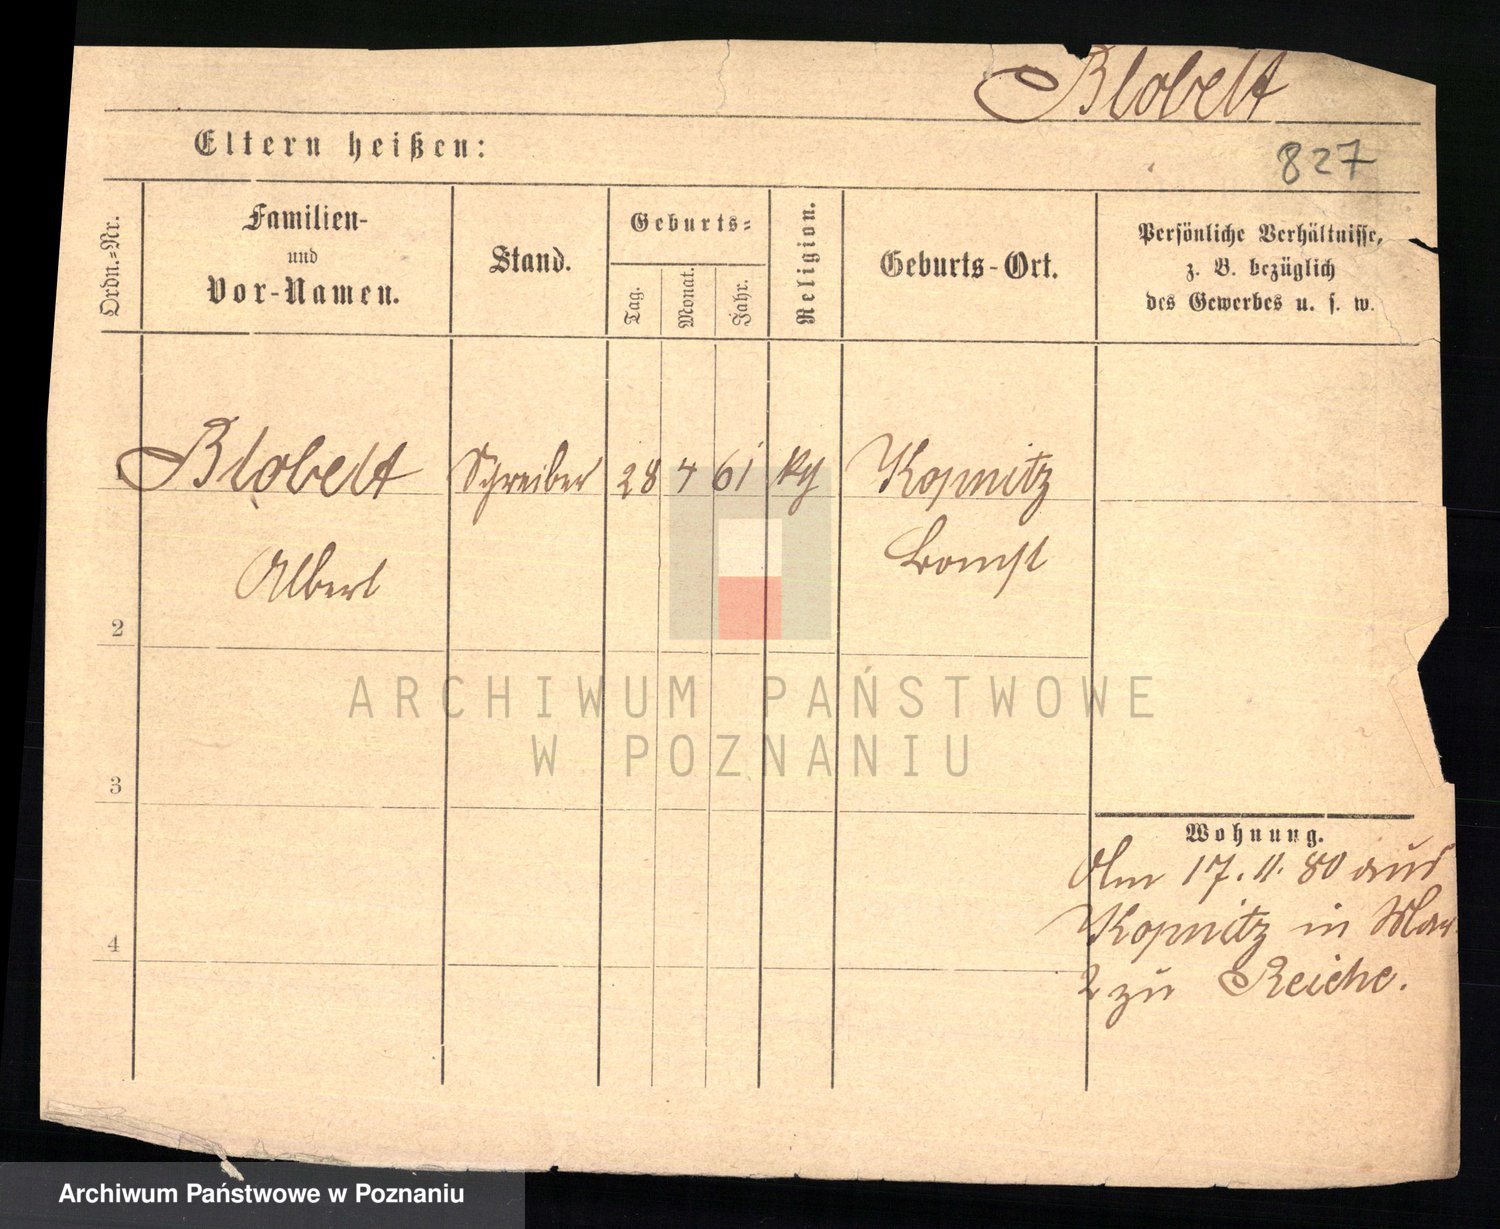 Blobelt
Eltern heißen:
827
Ordn.=Nr.
Familien-
und
Vor-Namen.
Stand.
Geburts=
Tag.
Monat.
Jahr.
Religion.
Geburts-Ort.
Persönliche Verhältnisse,
z. B. bezüglich
des Gewerbes u. s. w.
Blobelt Schreiber 28 4 61 Kopnitz
Albert Bomst
2
3
4
Wohnung.
Am 17. 11. 80 aus
Kopnitz in
2 zu Reiche.
ARCHIWUM PAŃSTWOWE
W POZNANIU
Archiwum Państwowe w Poznaniu